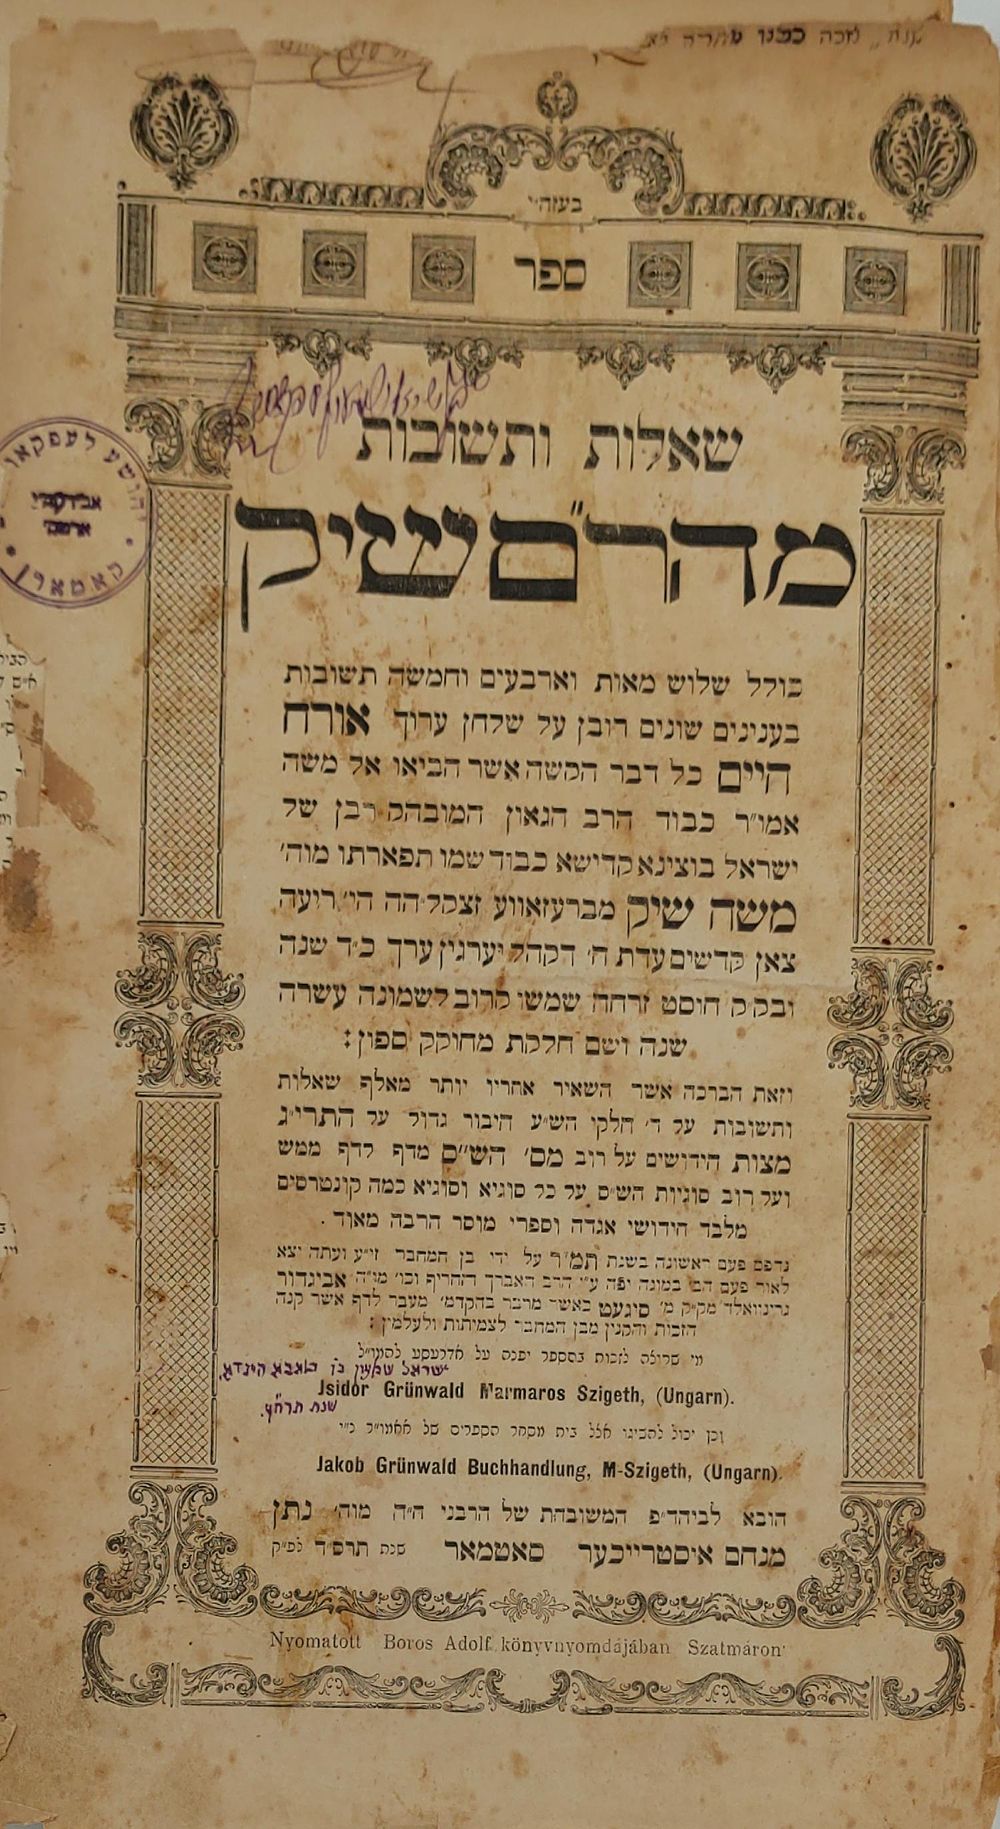 בעזה״י
ספר
שאלות ותשובות
מהר״ם שיק
כולל שלוש מאות וארבעים וחמשה תשובות
בענינים שונים רובן על שלחן ערוך אורח
חיים כל דבר הקשה אשר הביאו אל משה
אמו״ר כבוד הרב הגאון המובהק רבן של
ישראל בוצינא קדישא כבוד שמו תפארתו מוה׳
משה שיק מברעזאווע זצקל״הה הי׳ רועה
צאן קדשים עדת ה׳ דקהל יערגין ערך כ״ד שנה
ובק״ק חוסט זרחה שמשו קרוב לשמונה עשרה
שנה ושם חלקת מחוקק ספון :
וזאת הברכה אשר השאיר אחריו יותר מאלף שאלות
ותשובות על ד׳ חלקי הש״ע חיבור גדול על התרי״ג
מצות חידושים על רוב מס׳ הש״ס מדף לדף ממש
ועל רוב סוגיות הש״ס על כל סוגיא וסוגיא כמה קונטרסים
מלבד חידושי אגדה וספרי מוסר הרבה מאוד .
נדפס פעם ראשונה בשנת תמ״ר על ידי בן המחבר זי״ע ועתה יצא
לאור פעם הב׳ במונה יפה ע״י הרב האברך החריף וכו׳ מו״ה אביגדור
גרינוואלד מק״ק מ׳ סיגעט כאשר מדבר בהקדמ׳ מעבר לדף אשר קנה
הזכות והקנין מבן המחבר לצמיתות ולעלמין :
מי שרוצה לזכות בהספר יפנה על אדרעסע להמו״ל
ישראל שמעון בן
Isidor Grünwald Marmaros Szigeth, (Ungarn).
שנת תרח״ץ.
וכן יכול להשיגו אצל בית מסחר הספרים של אאמו״ר נ״י
Jakob Grünwald Buchhandlung, M-Szigeth, (Ungarn).
הובא לביהד״פ המשובחת של הרבני ה״ה מוה׳ נתן
מנחם איסטרייכער סאטמאר שנת תרס״ד לפ״ק
Nyomatott Boros Adolf könyvnyomdájában Szatmáron
יהושע לעפקאו
קאמארן